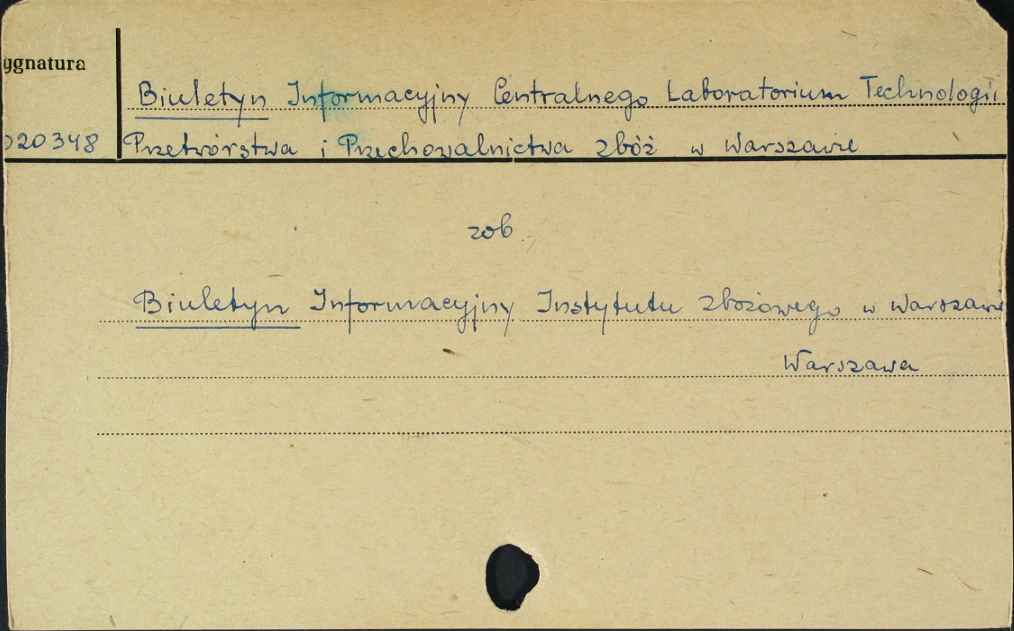 ygnatura
Biuletyn Informacyjny Centralnego Laboratorium Technologii
020348 Przetwórstwa i Przechowalnictwa zbóż w Warszawie
zob.
Biuletyn Informacyjny Instytutu zbożowego w Warszawie
Warszawa